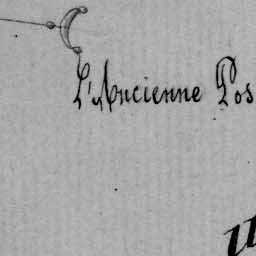 L'Ancienne Pos